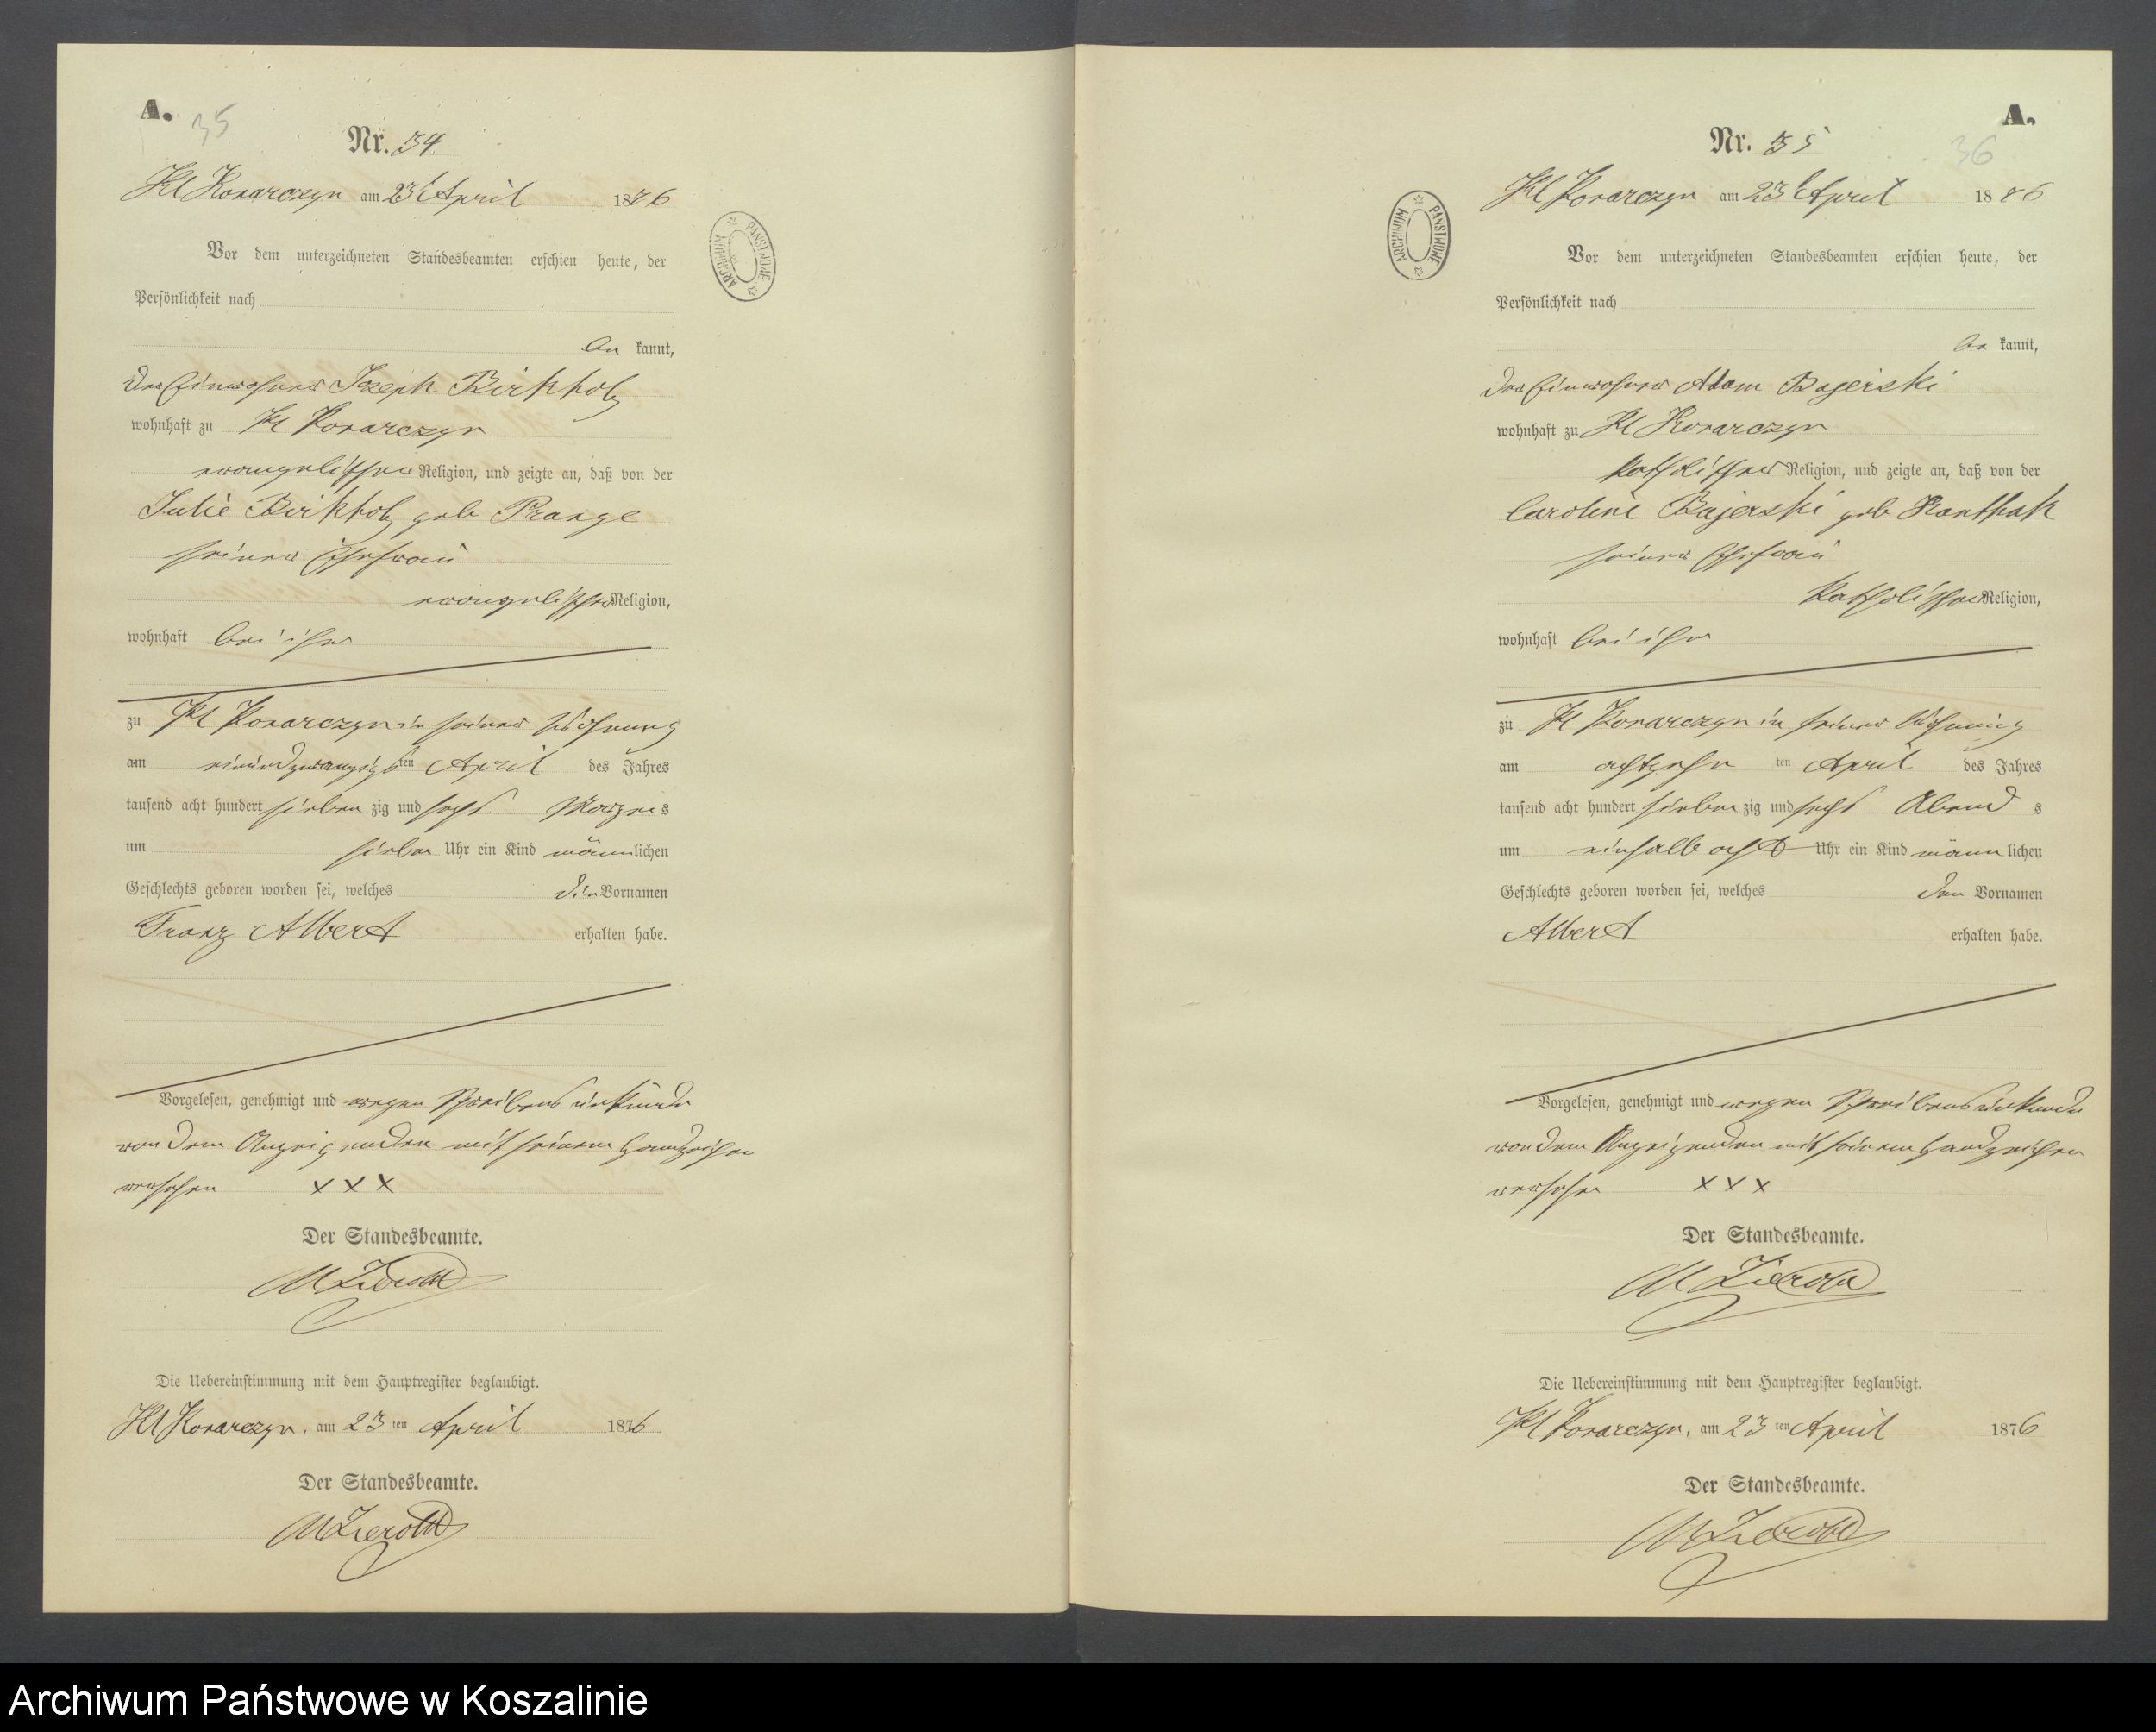 A.
35
Nr. 34
Kl Konarczyn am 23t April 1876
Vor dem unterzeichneten Standesbeamten erschien heute, der
Persönlichkeit nach
be kannt,
der Einwohner Joseph Birkholz
wohnhaft zu Kl Konarczyn
evangelischer Religion, und zeigte an, daß von der
Julie Birkholz geb Prange
seiner Ehefrau
evangelischer Religion,
wohnhaft bei ihm
zu Kl Konarczyn in seiner Wohnung
am einundzwanzigsten April des Jahres
tausend acht hundert sieben zig und sechs Morgens
um sieben Uhr ein Kind männlichen
Geschlechts geboren worden sei, welches die Vornamen
Franz Albert erhalten habe.
Vorgelesen, genehmigt und wegen Schreibensunkunde
von dem Anzeigenden mit seinem Handzeichen
versehen XXX
Der Standesbeamte.
Die Uebereinstimmung mit dem Hauptregister beglaubigt.
Kl Konarczyn, am 23 ten April 1876
Der Standesbeamte.
ARCHIWUM PAŃSTWOWE
A.
36
Nr. 35
Kl Konarczyn am 23t April 1876
Vor dem unterzeichneten Standesbeamten erschien heute, der
Persönlichkeit nach
be kannt,
der Einwohner Adam Bajerski
wohnhaft zu Kl Konarczyn
katholischer Religion, und zeigte an, daß von der
Caroline Bajerski geb Kanthak
seiner Ehefrau
katholischer Religion,
wohnhaft bei ihm
zu Kl Konarczyn in seiner Wohnung
am achtzehn ten April des Jahres
tausend acht hundert sieben zig und sechs Abend s
um einhalb acht Uhr ein Kind männ lichen
Geschlechts geboren worden sei, welches den Vornamen
Albert erhalten habe.
Vorgelesen, genehmigt und wegen Schreibensunkunde
von dem Anzeigenden mit seinem Handzeichen
versehen XXX
Der Standesbeamte.
Die Uebereinstimmung mit dem Hauptregister beglaubigt.
Kl Konarczyn, am 23 ten April 1876
Der Standesbeamte.
ARCHIWUM PAŃSTWOWE
Archiwum Państwowe w Koszalinie